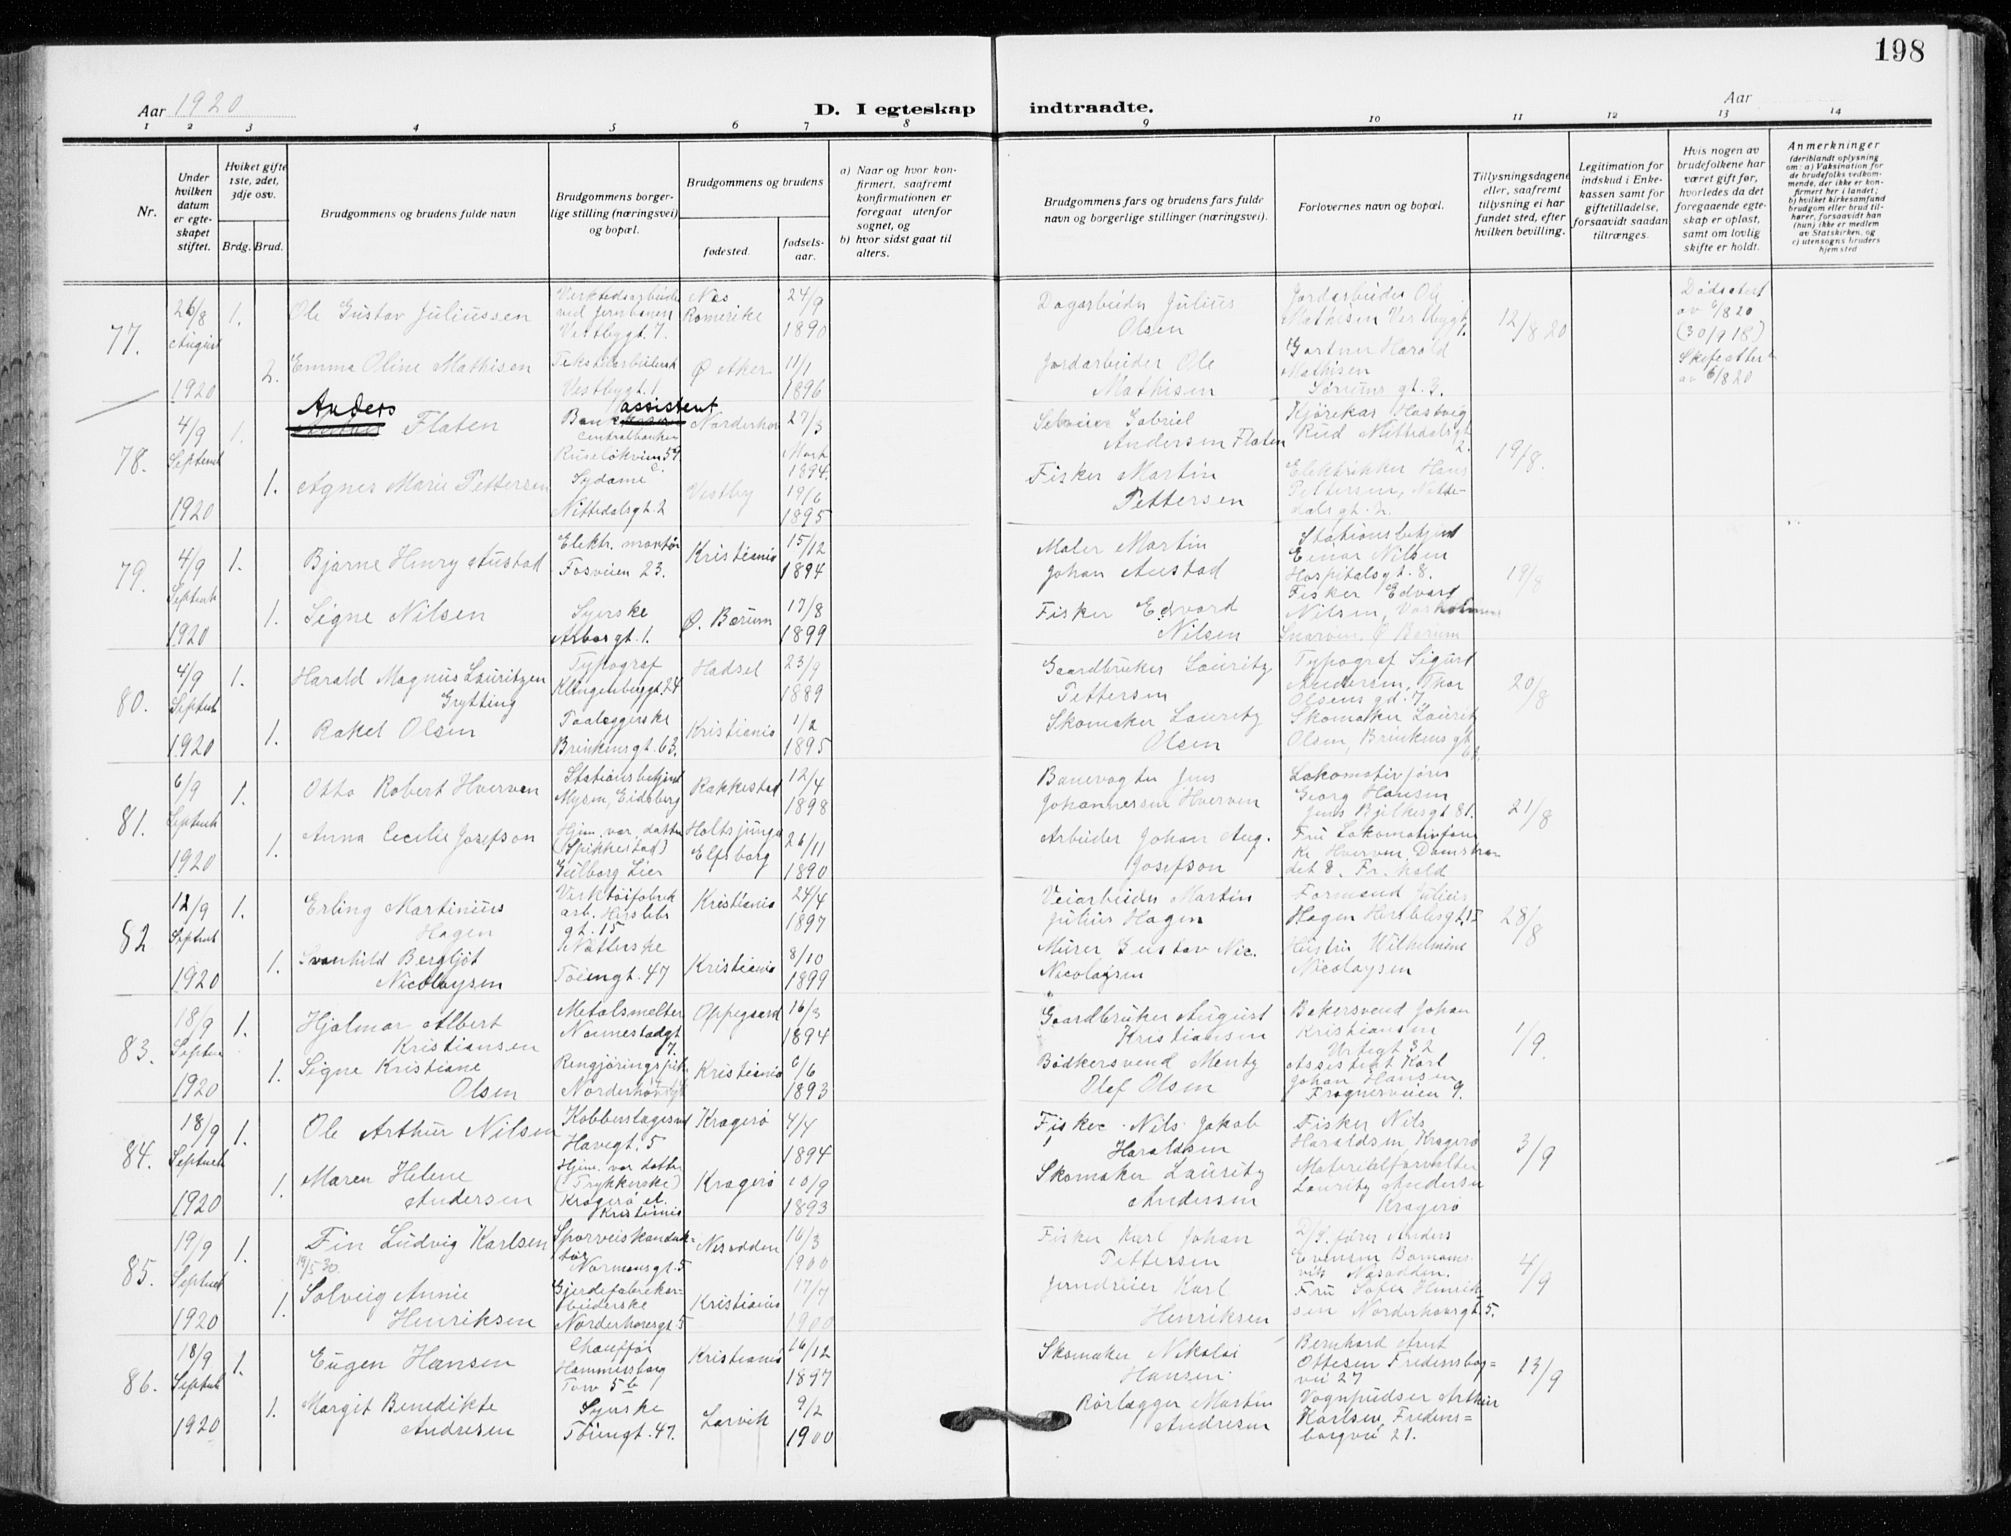 198
Aar 1920
D. I egteskap indtraadte.
Aar
1 2 3 4 5 6 7 8 9 10 11 12 13 14
Nr.
Under hvilken datum er egteskapet stiftet.
Hvilket gifte 1ste, 2det, 3dje osv.
Brdg. Brud.
Brudgommens og brudens fulde navn
Brudgommens borgerlige stilling (næringsvei) og bopæl.
Brudgommens og brudens
fødested.
fødselsaar.
a) Naar og hvor konfirmert, saafremt konfirmationen er foregaat utenfor sognet, og
b) hvor sidst gaat til alters.
Brudgommens fars og brudens fars fulde navn og borgerlige stillinger (næringsvei).
Forlovernes navn og bopæl.
Tillysningsdagene eller, saafremt tillysning ei har fundet sted, efter hvilken bevilling.
Legitimation for indskud i Enkekassen samt for giftetilladelse, forsaavidt saadan tiltrænges.
Hvis nogen av brudefolkene har været gift før, hvorledes da det foregaaende egteskap er opløst, samt om lovlig skifte er holdt.
Anmerkninger
(deriblandt oplysning om: a) Vaksination for de brudefolks vedkommende, der ikke er konfirmert her i landet; b) hvilket kirkesamfund brudgom eller brud tilhører, forsaavidt han (hun) ikke er medlem av Statskirken, og c) utensogns bruders hjemsted
77.
26/8 August 1920
1.
Ole Gustav Juliussen
ved Jernbanen
Vestbygt. 7.
Nes Romerike
24/9 1890
Dagarbeider Julius Olsen
Jordarbeider Ole Mathisen
12/8 20
av 6/8 20
(30/9 18)
2.
Emma Oline Mathisen
Vestbygt. 1.
Ø Aker
11/1 1896
Jordarbeider Ole Mathisen
Gartner Harald Mathisen
Sørums gt. 3.
av 6/8 20
78.
4/9 Septemb 1920
1.
Anders Flaten
Bankassistent
Centralbanken
Norderhov
27/3 Mars 1894.
Gabriel Andersen Flaten
Rud Nittedalsgt 2.
19/8.
1.
Agnes Marie Pettersen
Sydame
Nittedalsgt. 2
Vestby
19/6 1895
Fisker Martin Pettersen
Elektrikker Hans Pettersen, Nittedalsgt. 2.
79.
4/9 Septemb 1920
1.
Bjarne Henry Austad
Elektr. montør
Fosveien 23.
Kristiania
15/12 1894
Maler Martin Johan Austad
Stationsbetjent Einar Nilsen
Hospitalsgt. 8.
19/8
1.
Signe Nilsen
Syerske
Arborgt. 1.
Ø. Bærum
17/8 1899
Fisker Edvard Nilsen
Fisker Edvard Nilsen,
Snarøen, Ø Bærum
80.
4/9 Septemb 1920
1.
Harald Magnus Lauritzen Grytting
Typograf
Klingenberggt. 24
Hadsel
23/9 1889
Gaardbruker Lauritz Pettersen
Typograf Sigurd Andersen, Thor Olsens gd. 7.
20/8
1.
Rakel Olsen
Paaleggerske
Brinkensgt. 63.
Kristiania
1/2 1895
Skomaker Lauritz Olsen
Skomaker Lauritz Olsen, Brinkens gt. 63.
81.
6/9 Septemb 1920
1.
Otto Robert Hverven
Stationsbetjent
Mysen, Eidsberg
Rakkestad
12/4 1898
Banevogter Jens Johannesen Hverven
Lokomotivfører Georg Hansen
Jens Bjelkesgt 81.
21/8
1.
Anna Cecilie Josefson
Hjem. var. datter
(Spikkestad)
Gulborg Lier
Holtsjunga Elfsborg
26/11 1890
Arbeider Johan Aug. Josefson
Fru Lokomotivfører Kr Hverven, Damstrandet 8. Fr. hald
82
12/9 Septemb 1920
1.
Erling Martinius Hagen
Verktøifabrik arb. Herslebs gt. 15
Kristiania
24/4 1897
Veiarbeider Martin Julius Hagen
Formand Julius Hagen Herslebsgt. 15
28/8
1.
Svanhild Bergljot Nicolaysen
Watterske
Tøiengt. 47
Kristiania
8/10 1899
Murer Gustav Nic. Nicolaysen
Hustru Wilhelmine Nicolaysen
83.
18/9 Septem 1920
1.
Hjalmar Albert Kristiansen
Metalsmelter
Nannestadgt 7.
Oppegaard
16/3 1894
Gaardbruker August Kristiansen
Bakersvend Johan Kristiansen
Urtegt 32
1/9.
1.
Signe Kristiane Olsen
Rengjøringspike
Norderhovsgt
Kristiania
6/6 1893
Bødkersvend Mentz Olef Olsen
Assistent Karl Johan Hansen
Frognerveien 9.
84.
18/9 Septemb 1920
1.
Ole Arthur Nilsen
Kobberslagersvd
Havegt. 5
Kragerø
4/4 1894
Fisker Nils Jakob Haraldsen
Fisker Nils Haraldsen Kragerø
3/9
1.
Maren Helene Andersen
Hjem. var datter
(Trykkerske)
Kragerø et. Kristiania
Kragerø
10/9 1893
Skomaker Lauritz Andersen
Materialforvalter Lauritz Andersen Kragerø
85.
19/9 Septemb 1920
1.
Fin Ludvig Karlsen
19/5 30.
Sporveiskonduktør
Normansgt. 5
Nesodden
16/3 1900
Fisker Karl Johan Pettersen
fører Anders Evensen
Nesodden.
4/9
1.
Solveig Annie Henriksen
Gjerdefabrikarbeiderske
Norderhovsgt. 5
Kristiania
17/7 1900
Jerndreier Karl Henriksen
Fru Sofie Henriksen Norderhovsgt. 5.
86.
18/9 Septemb 1920
1.
Eugen Hansen
Chauffør
Hammersborg Torv 5 b
Kristiania
16/12 1897
Skomaker Nikolai Hansen.
Bernhard Arnt Ottesen Fredensborgvei 27
13/9
1.
Margit Benedikte Andresen
Syerske
Tøiengt. 47.
Larvik
9/2 1900
Rørlægger Martin Andresen
Vognpudser Arthur Karlsen, Fredensborgvei 21.